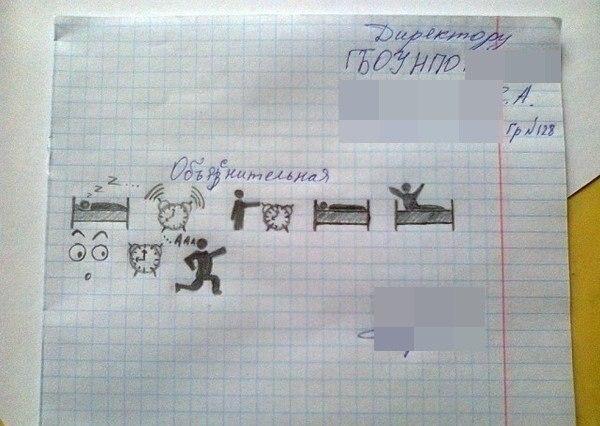 Директору
ГБОУНПО
А.
Гр №128
Объяснительная
z z z...
ААА